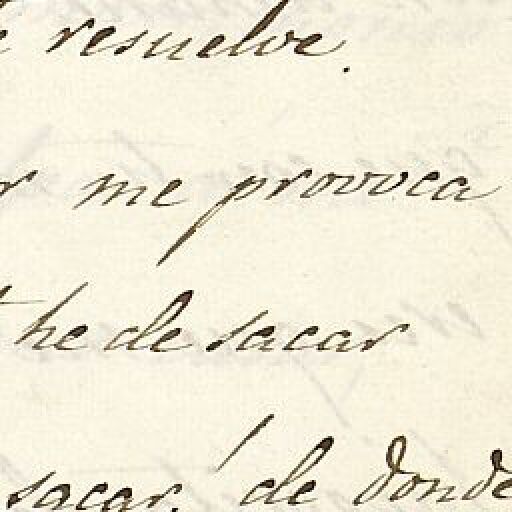 resuelve.
me provoca
he de sacar
sacar! de donde